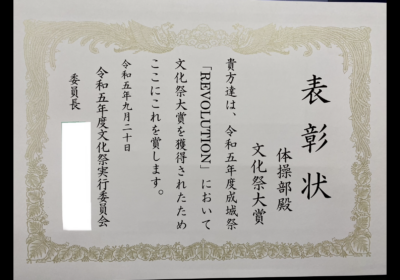 表彰状
体操部殿
文化祭大賞
貴方達は、令和五年度成城祭
「REVOLUTION」において
文化祭大賞を獲得されたため
ここにこれを賞します。
令和五年九月二十日
令和五年度文化祭実行委員会
委員長